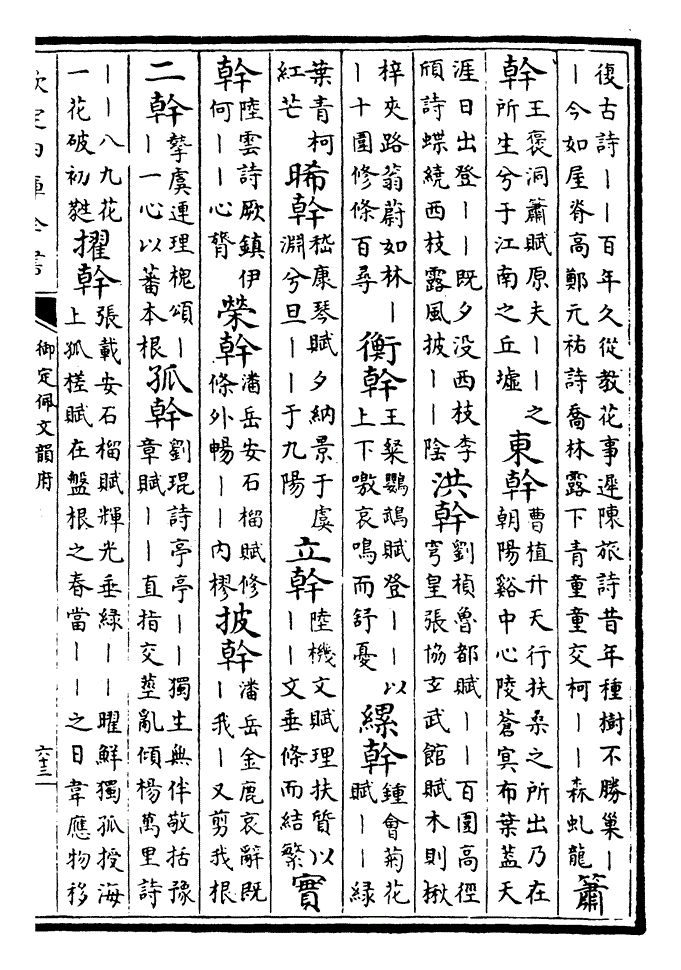 復古詩｜｜百年久從教花事遲陳旅詩昔年種樹不勝巢｜
｜今如屋脊高鄭元祐詩喬林露下青童童交柯｜｜森虬龍
簫
幹
王褒洞簫賦原夫｜｜之
所生兮于江南之丘墟
東幹
曹植升天行扶桑之所出乃在
朝陽谿中心陵蒼冥布葉蓋天
涯日出登｜｜既夕没西枝李
頎詩蝶繞西枝露風披｜｜陰
洪幹
劉楨魯都賦｜｜百圍高徑
穹皇張協玄武館賦木則楸
梓夾路蓊蔚如林｜
｜十圍修條百尋
衡幹
王粲鸚鵡賦登｜｜以
上下噭哀鳴而舒憂
縲幹
鍾會菊花
賦｜｜綠
葉青柯
紅芒
晞幹
嵇康琴賦夕納景于虞
淵兮旦｜｜于九陽
立幹
陸機文賦理扶質以
｜｜文垂條而結繁
實
幹
陸雲詩厥鎮伊
何｜｜心膂
榮幹
潘岳安石榴賦修
條外暢｜｜内樛
披幹
潘岳金鹿哀辭既
｜我｜又剪我根
二幹
摯虞連理槐頌｜
｜一心以蕃本根
孤幹
劉琨詩亭亭｜｜獨生無伴敬括豫
章賦｜｜直指交莖亂傾楊萬里詩
｜｜八九花
一花破初
擢幹
張載安石榴賦輝光垂綠｜｜曜鮮獨孤授海
上孤槎賦在盤根之春當｜｜之日韋應物移
欽定四庫全書
御定佩文韻府
六十三